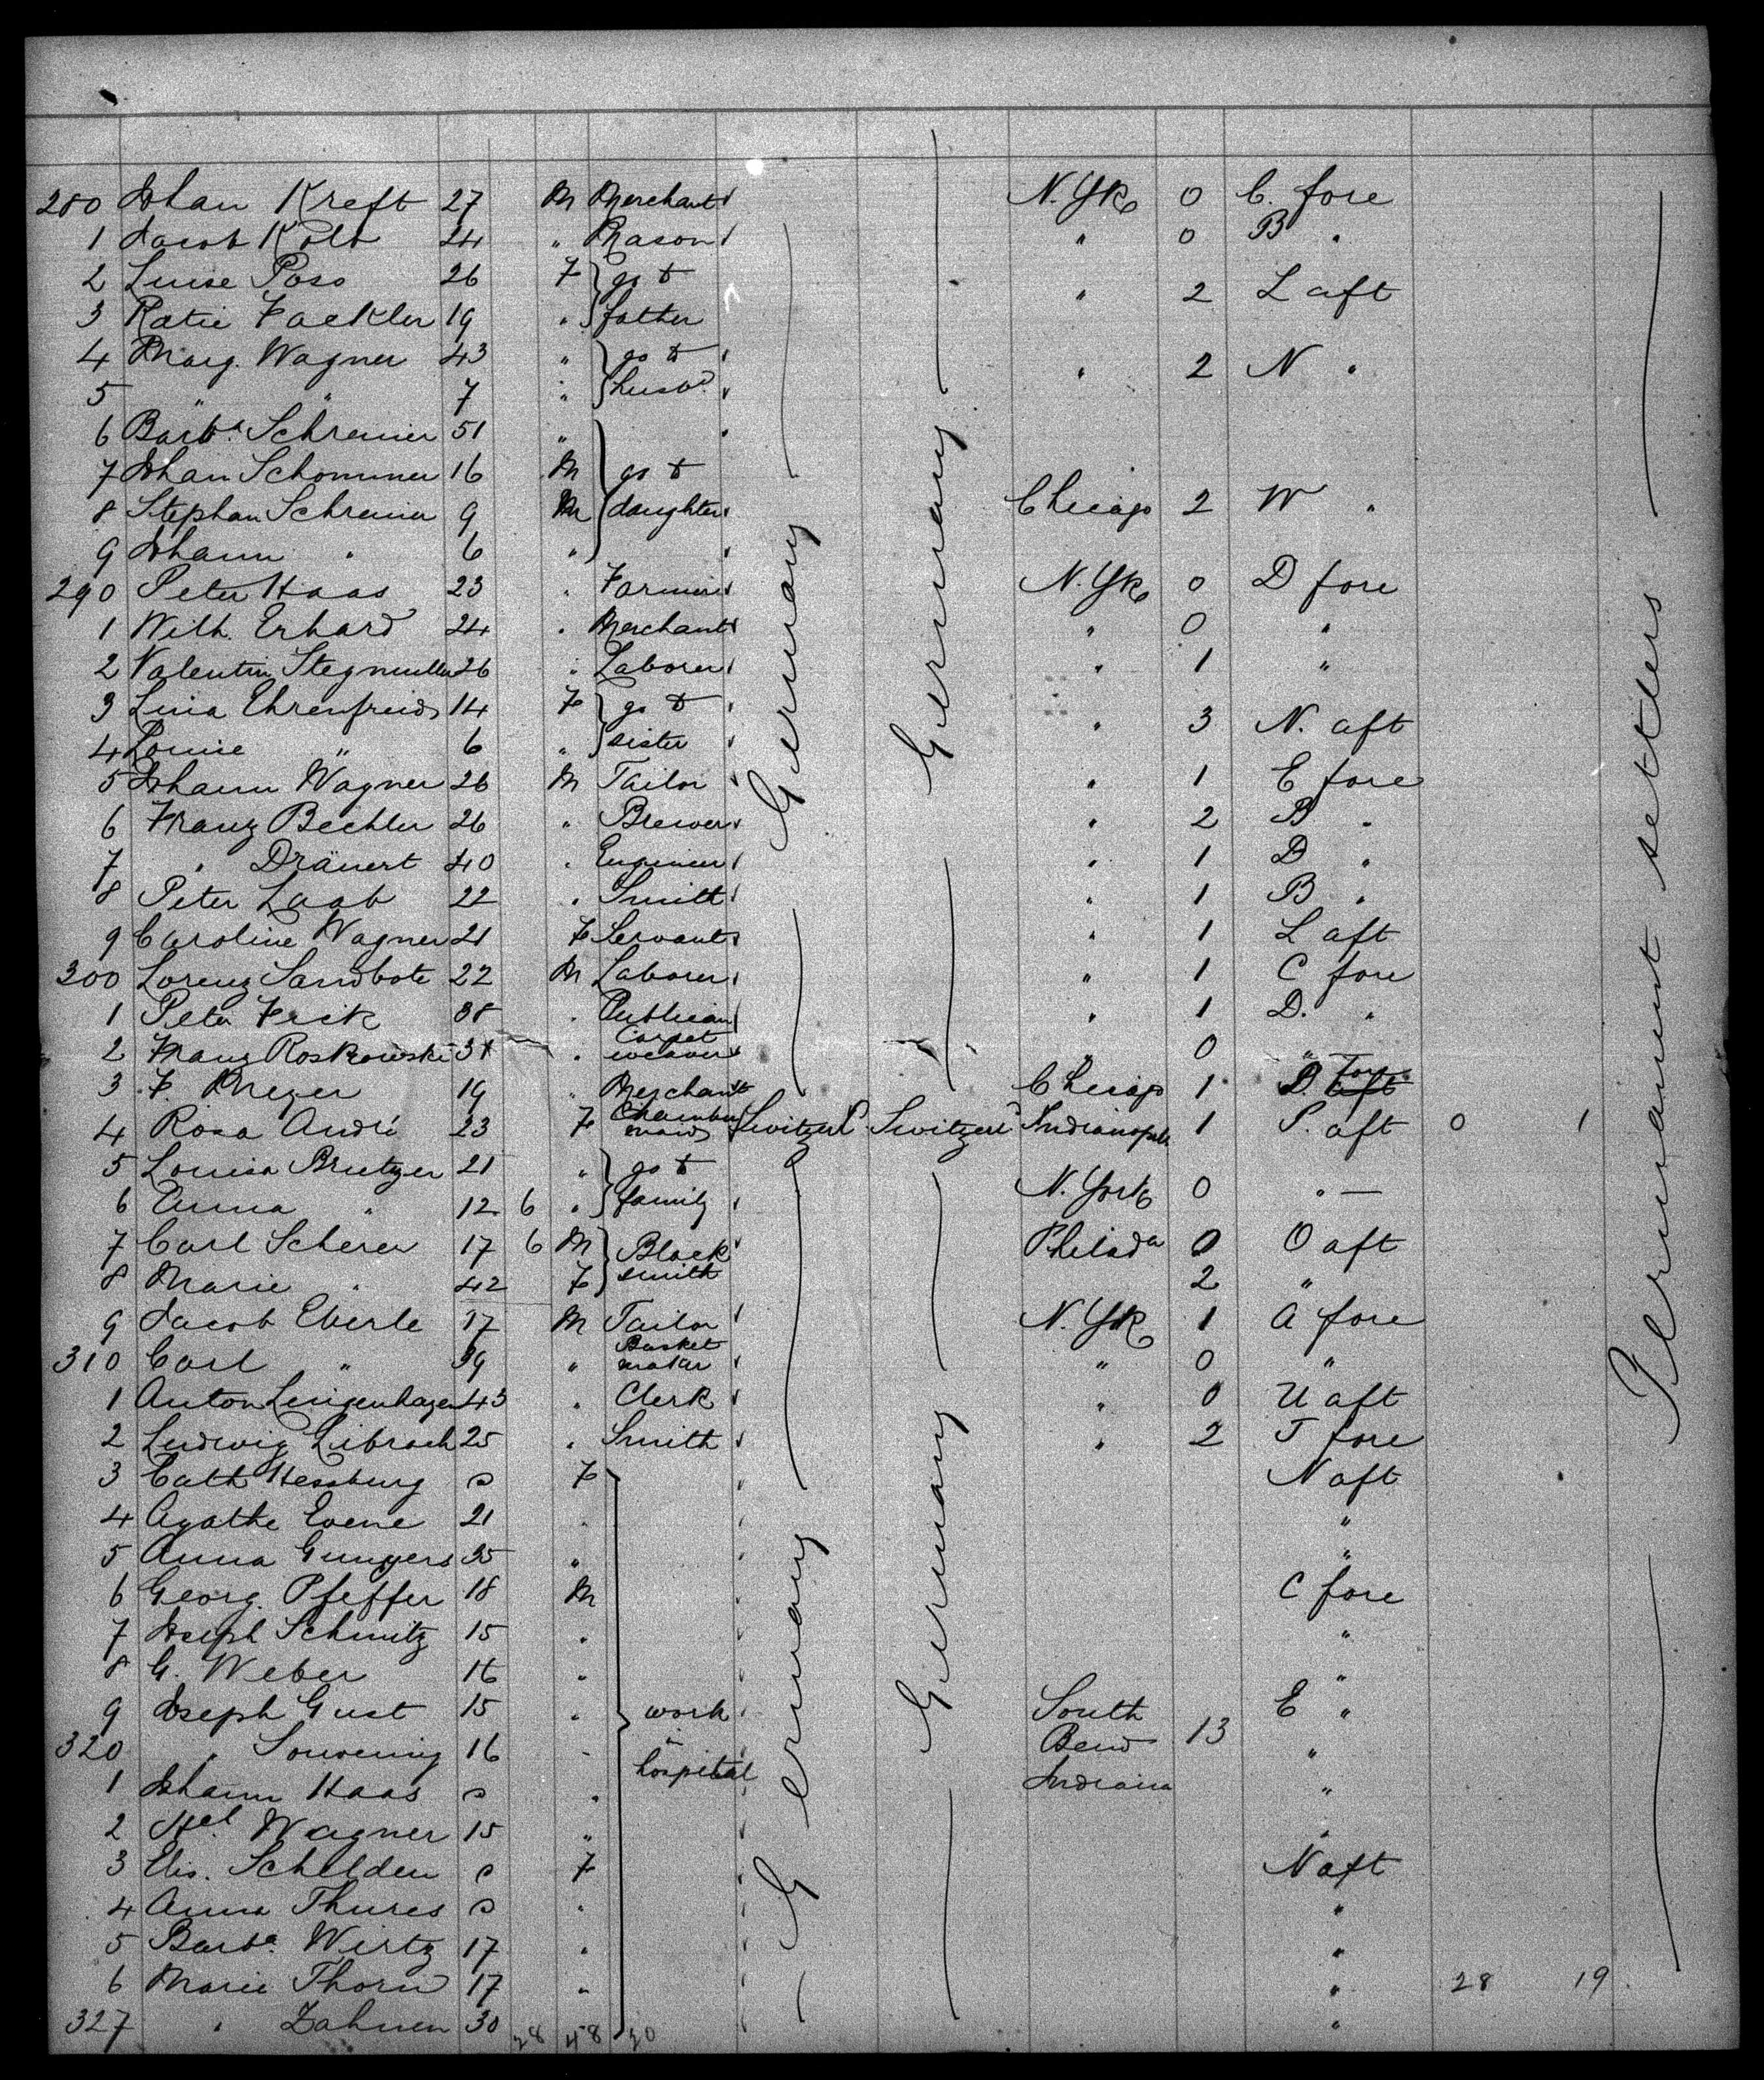 280 Johan Kreft 27 M Merchant N. Yk 0 C. fore
1 Jacob Kolb 24 " Mason " 0 B "
2 Luise Poss 26 F go to
3 Katie Fackler 19 " father " 2 L aft
4 Marg. Wagner 43 " go to " 2 N "
5 " " 7 " husbd
6 Barba Schreiner 51 "
7 Johan Schommer 16 M go to
8 Stephan Schreiner 9 M daughter Chicago 2 W "
9 Johann " 6 "
290 Peter Haas 23 " Farmer N. Yk 0 D fore
1 Wilh. Erhard 24 " Merchant " 0 "
2 Valentin Stegmuller 26 " Laborer " 1 "
3 Lina Ehrenfried 14 F go to " 3 N. aft
4 Louise " 6 " sister
5 Johann Wagner 26 M Tailor " 1 E fore
6 Franz Bechler 26 " Brewer " 2 B "
7 " Dränert 40 " Engineer " 1 D "
8 Peter Laab 22 " Smith " 1 B "
9 Caroline Wagner 21 F Servant " 1 L aft
300 Lorenz Sandbote 22 M Laborer " 1 C fore
1 Peter Frik 38 " Publican " 1 D. "
2 Franz Roskowski 31 " Carpet weaver " 0 "
3 F. Meyer 19 " Merchant Chicago 1 D. fore aft
4 Rosa André 23 F Chamber maid Switzerl Switzerl Indianapols 1 P. aft 0 1
5 Louisa Bretzer 21 " go to
6 Anna " 12 6 " family N. York 0 " —
7 Carl Scherer 17 6 M Black Philada 0 O aft
8 Marie " 42 F smith 2 "
9 Jacob Eberle 17 M Tailor N. Yk 1 A fore
310 Carl " 39 " Basket maker " 0 "
1 Anton Lengenhagen 43 " Clerk " 0 U aft
2 Ludwig Librach 25 " Smith " 2 T fore
3 Cath Hessburg F N aft
4 Agathe Evene 21 " "
5 Anna Gungers 35 " "
6 Georg. Pfeffer 18 M C fore
7 Joseph Schmitz 15 " "
8 G. Weber 16 " "
9 Joseph Gust 15 " work South E "
320 " Souvenig 16 " in Bend 13 "
1 Johann Haas " hospital Indiana "
2 Hel Wagner 15 " "
3 Elis. Schelden F N aft
4 Anna Thures " "
5 Barba. Wirtz 17 " "
6 Marie Thorn 17 " " 28 19
327 " Zahnen 30 "
28 48 20
Germany
Germany
Germany
Germany
Permanent settlers